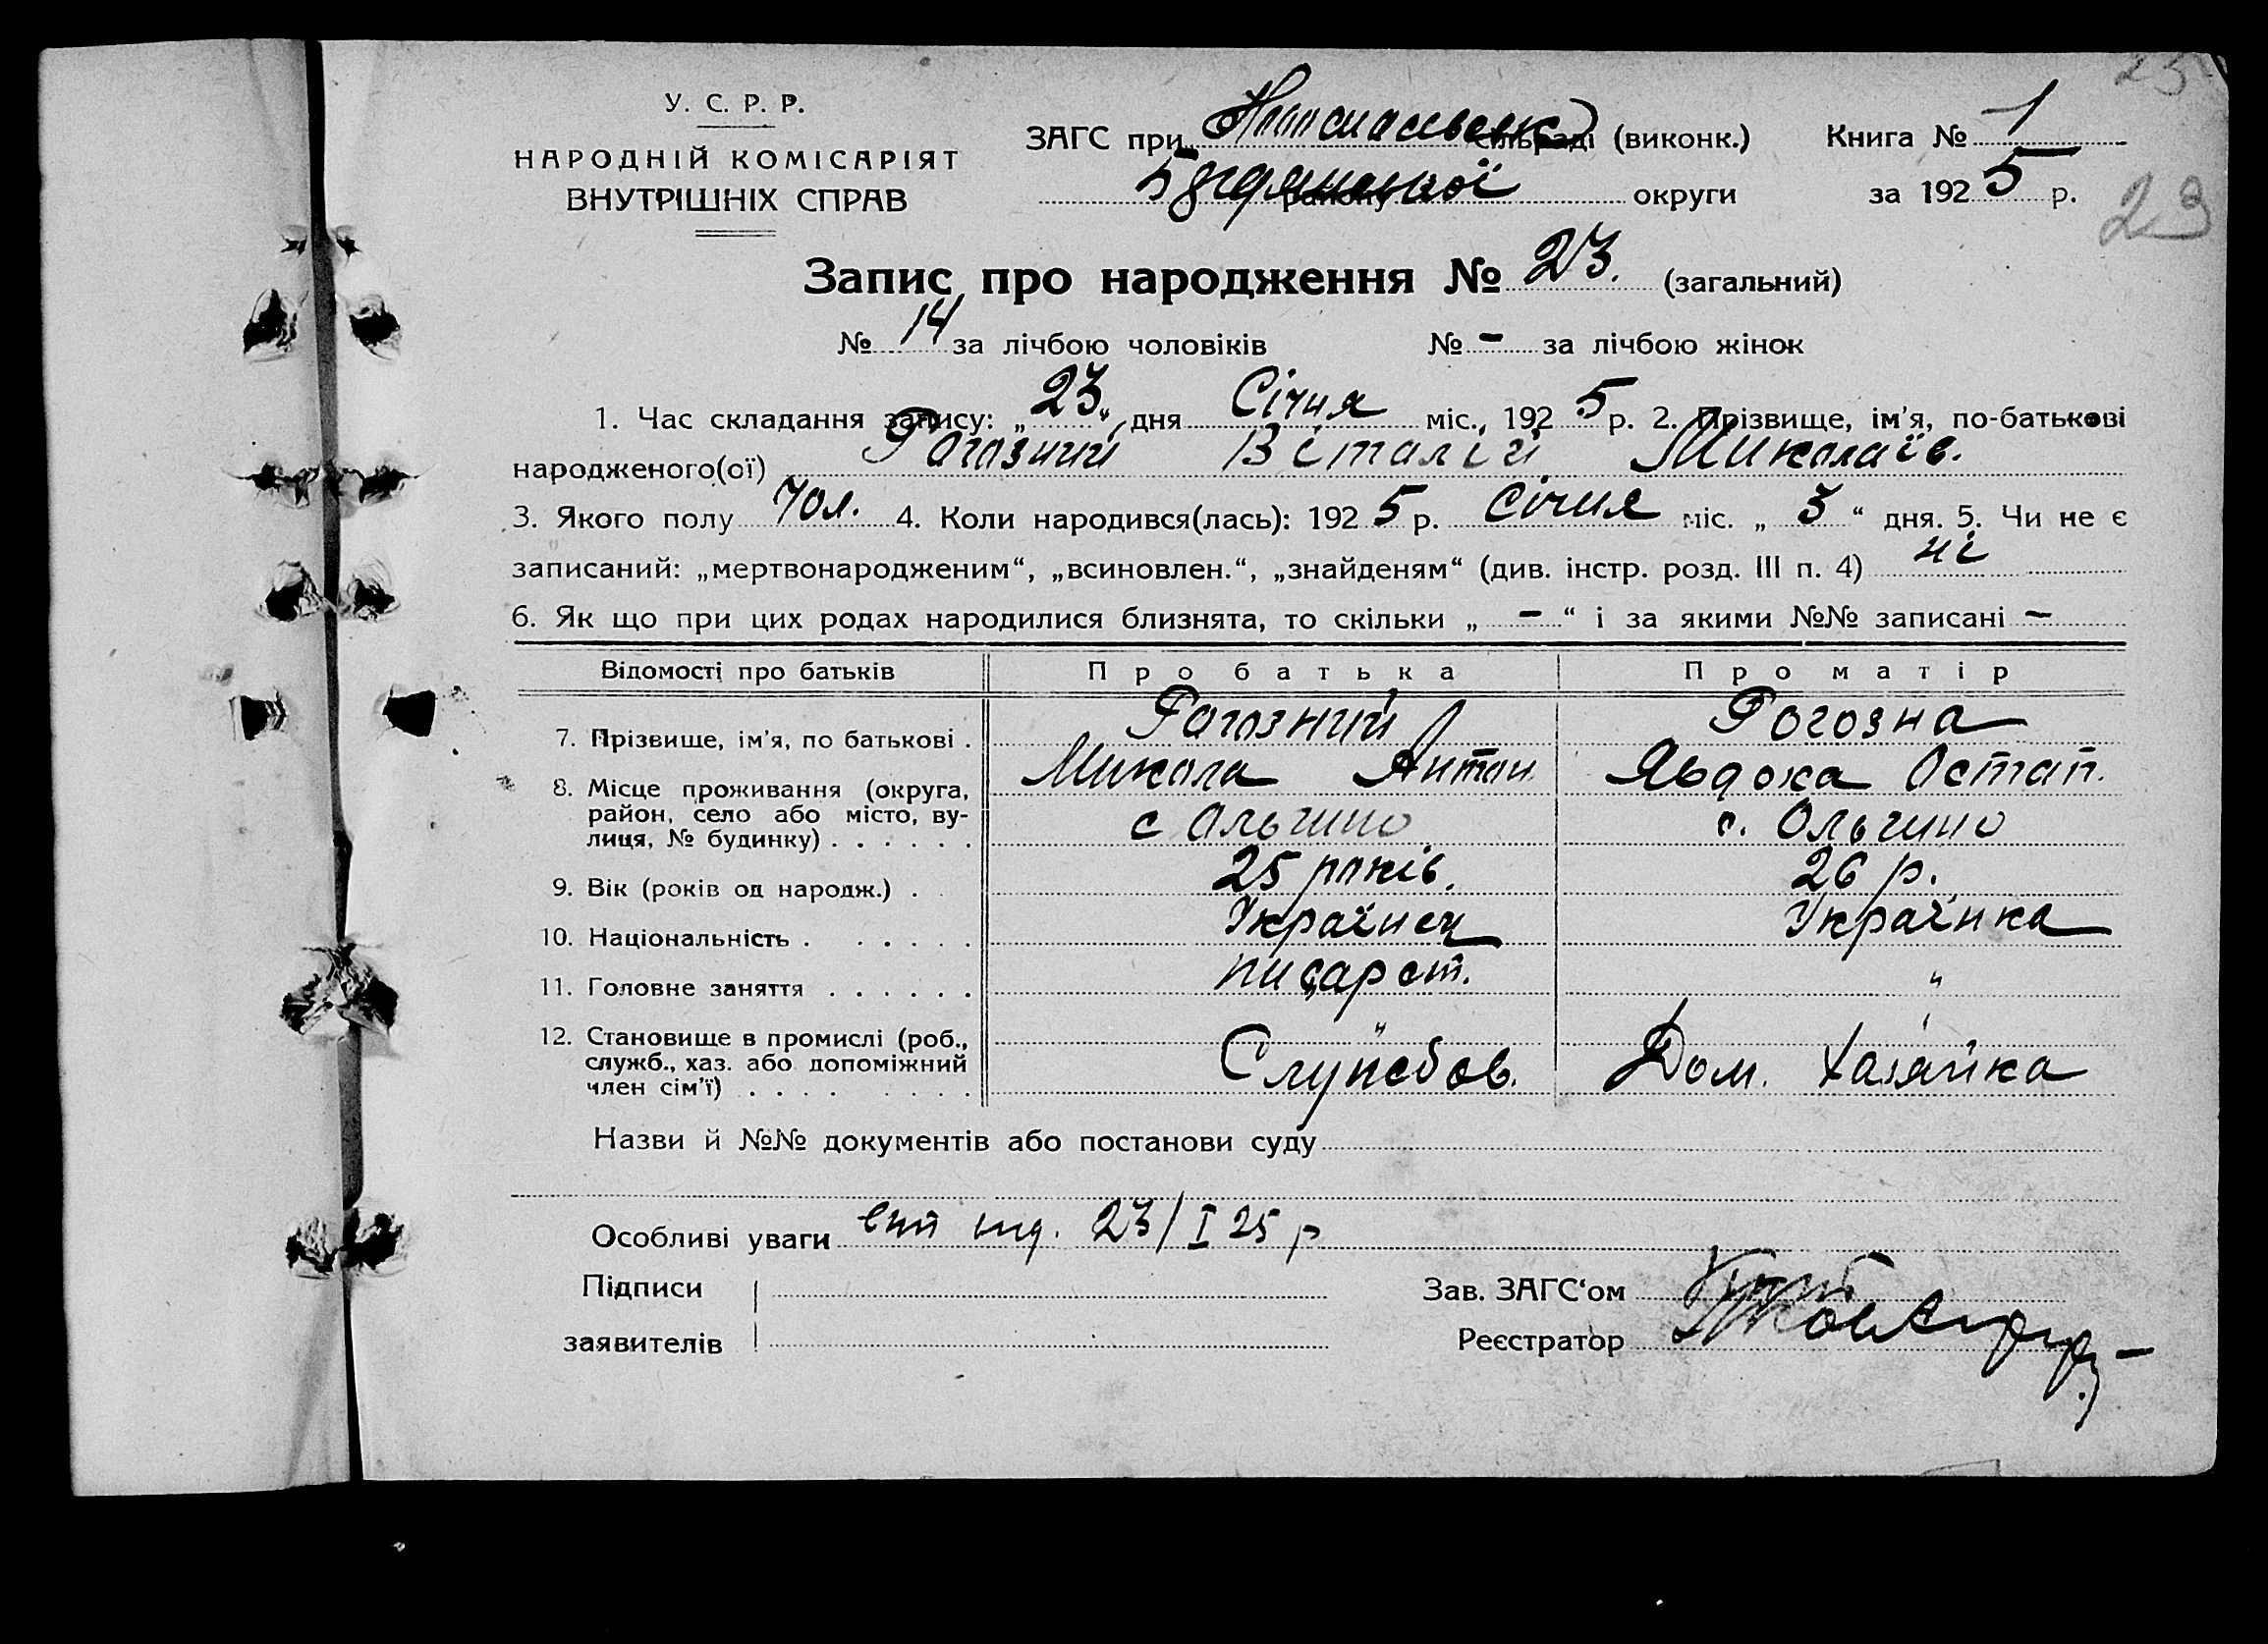 У. С. Р. Р.
НАРОДНІЙ КОМІСАРІЯТ
ВНУТРІШНІХ СПРАВ
ЗАГС при сільраді (виконк.) Книга № 1
району округи за 1925 р.
23
Запис про народження № 23. (загальний)
№ 14 за лічбою чоловіків № - за лічбою жінок
1. Час складання запису: „23" дня Січня міс., 1925 р. 2. Прізвище, ім'я, по-батькові
народженого(ої) Рогозний Віталій Миколаїв.
3. Якого полу чол. 4. Коли народився(лась): 1925 р. Січня міс. „3“ дня. 5. Чи не є
записаний: „мертвонародженим“, „всиновлен.“, „знайденям“ (див. інстр. розд. III п. 4) ні
6. Як що при цих родах народилися близнята, то скільки „-“ і за якими №№ записані -
Відомості про батьків Про батька Про матір
7. Прізвище, ім'я, по батькові . Рогозний Рогозна
Микола Антон. Явдоха Остап.
8. Місце проживання (округа, район, село або місто, вулиця, № будинку) . . . . . . с Ольгино с. Ольгино
9. Вік (років од народж.) . 25 років. 26 р.
10. Національність . . . . . . Українец Українка
11. Головне заняття . . . . . . писарст. "
12. Становище в промислі (роб., служб., хаз. або допоміжний член сім'ї) . . . . . . . . Службов. Дом. Хазяйка
Назви й №№ документів або постанови суду
Особливі уваги 23/I 25 р
Підписи
заявителів
Зав. ЗАГС‘ом
Реєстратор